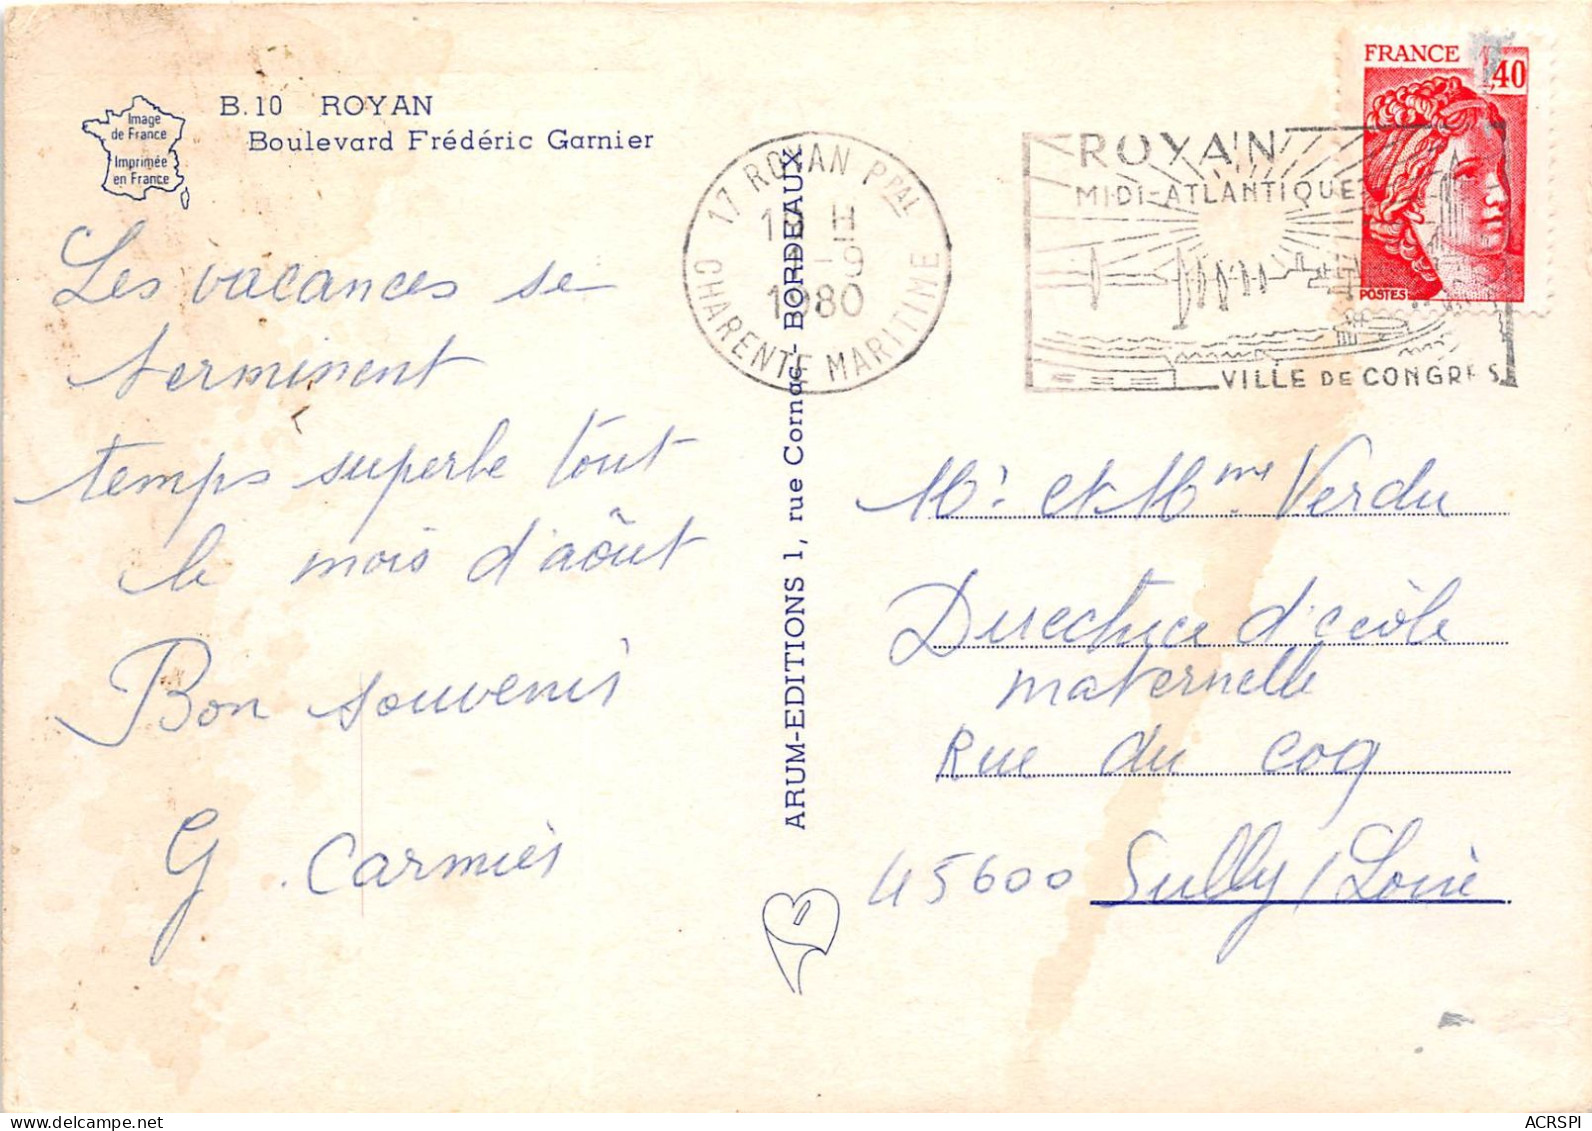 B.10 ROYAN
Boulevard Frédéric Garnier
Image
de France
Imprimée
en France
Les vacances se
terminent
temps superbe tout
le mois d'aôut
Bon souvenir
G. Carmiès
ARUM-EDITIONS 1, rue Cornac - BORDEAUX
17 ROYAN PPAL
H
-9
1980
CHARENTE MARITIME
ROYAN
MIDI-ATLANTIQUE
VILLE DE CONGRES
FRANCE 1,40
POSTES
Mr et Mme Verdu
Directrice d'école
maternelle
Rue du Coq
45600 Sully/Loire
ACRSPI